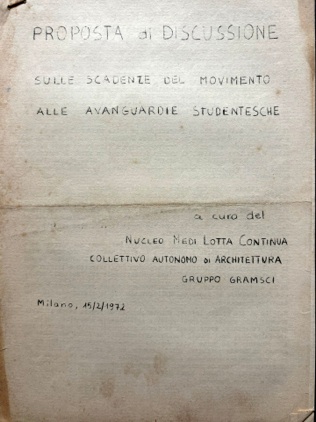 PROPOSTA di DISCUSSIONE
SULLE SCADENZE DEL MOVIMENTO
ALLE AVANGUARDIE STUDENTESCHE
a cura del
NUCLEO MEDI LOTTA CONTINUA
COLLETTIVO AUTONOMO di ARCHITETTURA
GRUPPO GRAMSCI
Milano, 15/2/1972